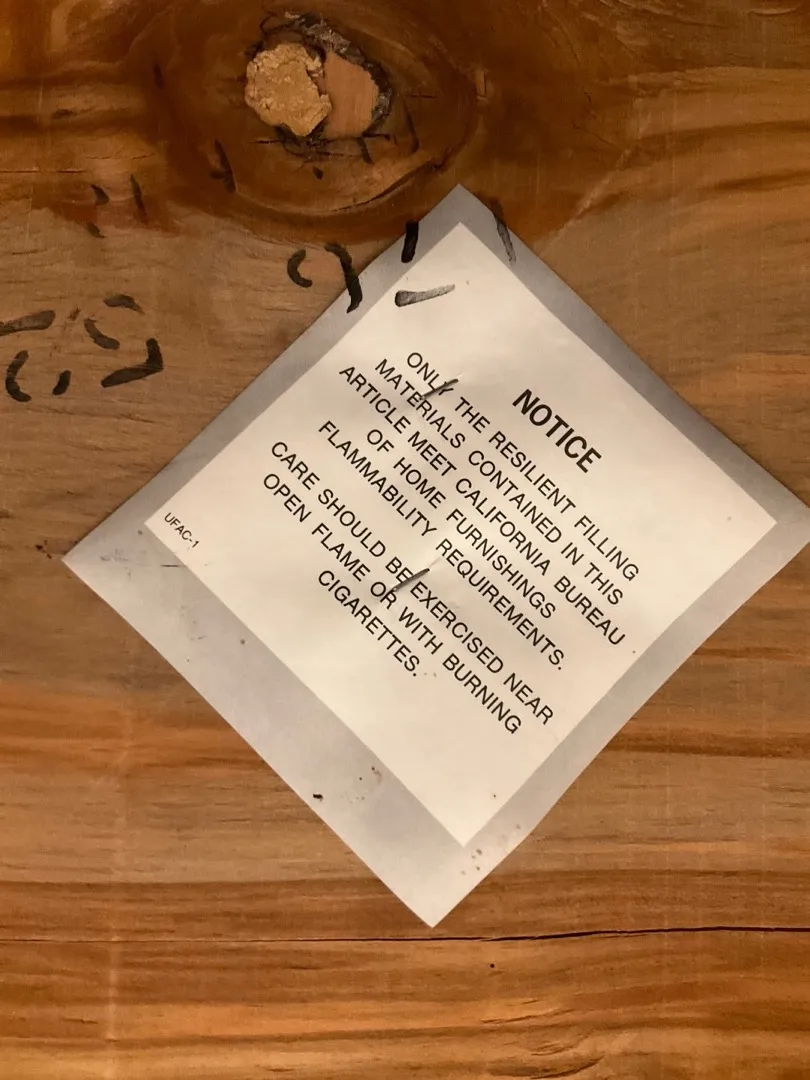 NOTICE
ONLY THE RESILIENT FILLING
MATERIALS CONTAINED IN THIS
ARTICLE MEET CALIFORNIA BUREAU
OF HOME FURNISHINGS
FLAMMABILITY REQUIREMENTS.
CARE SHOULD BE EXERCISED NEAR
OPEN FLAME OR WITH BURNING
CIGARETTES.
UFAC-1